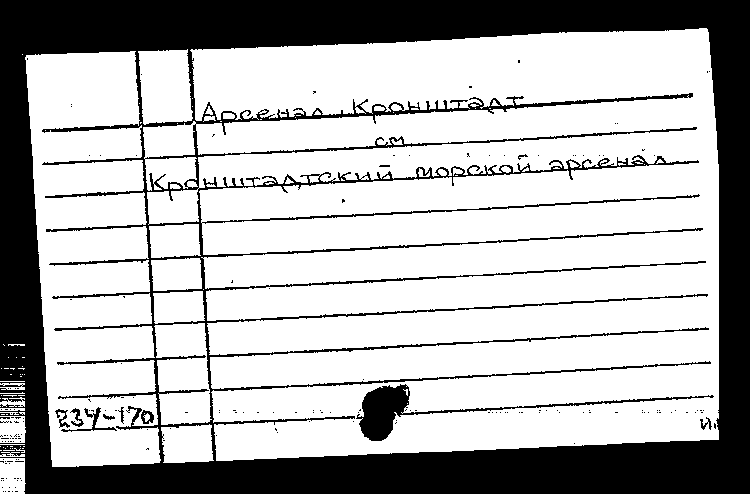 Арсенал, Кронштадт
см
Кронштадтский морской арсенал
234-170